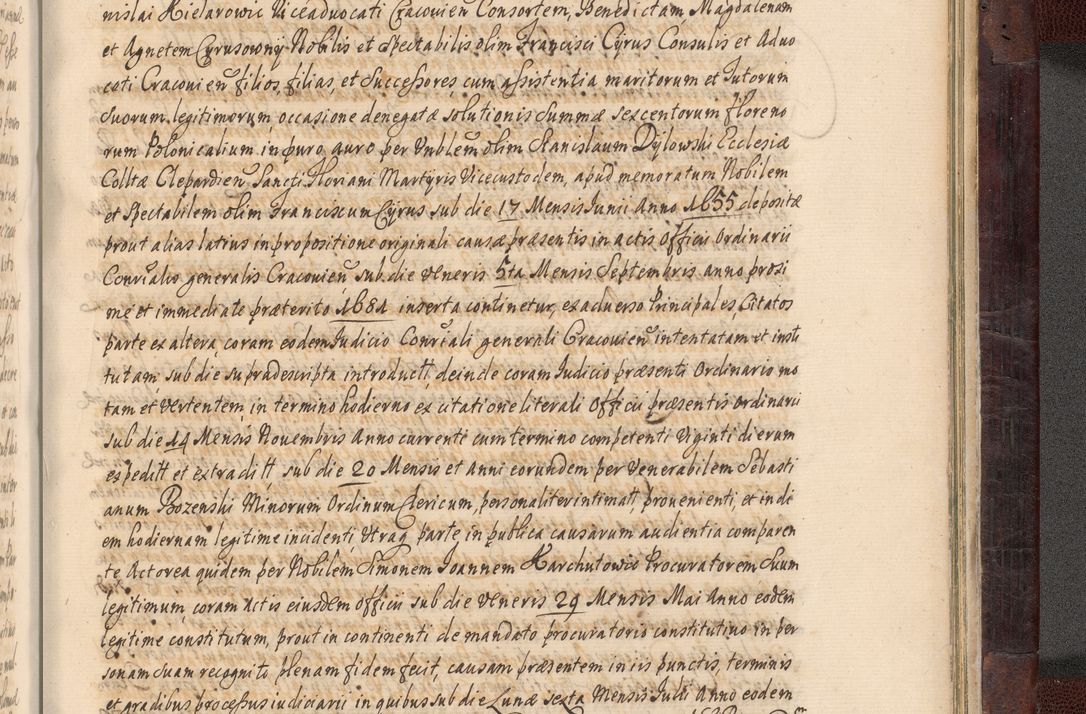 nislai Kielarowic Viceaduocati Cracouien Consortem, Benedictam Magdalenam
et Agnetem Cyrusowny Nobilis et Spectabilis olim Francisci Cyrus Consulis et Aduo
cati Cracouien filios, filias, et Successores, cum assistentia maritorum et Tutorum
Suorum legitimorum, occasione denegatæ solutionis Summæ sexcentorum floreno
rum Polonicalium in puro auro per Vnblem olim Stanislaum Dylowski Ecclesiæ
Colltæ Clepardien Sancti Floriani Martyris Vicecustodem, apud memoratum Nobilem
et Spectabilem olim Franciscum Cyrus sub die 17 Mensis Iunii Anno 1655 depositæ
prout alias latius in propositione originali causæ præsentis in actis Officii Ordinarii
Consralis generalis Cracouien sub die Veneris 5ta Mensis Septembris anno proxi
me et immediate præterito 1681 inserta continetur, ex aduerso Principales, Citatos
parte ex altera, coram eodem Iudicio Consrali generali Cracouien intentatam et insti
tutam, sub die supradescripta introductt, deinde coram Iudicio præsenti Ordinario mo
tam et Vertentem, in termino hodierno ex citatione literali Officii præsentis Ordinarii
sub die 14 Mensis Nouembris Anno currenti cum termino competenti Viginti dierum
expeditt et extraditt, sub die 20 Mensis et anni eorundem per Venerabilem Sebasti
anum Bozenski Minorum Ordinum Clericum, personaliter intimatt, prouenienti, et in di
em hodiernam legitime incidenti, Vtraq parte in publica causarum audientia comparen
te Actorea quidem per Nobilem Simonem Ioannem Karchutowic Procuratorem Suum
legitimum, coram Actis eiusdem Officii sub die Veneris 29 Mensis Mai Anno eodem
legitime constitutum, prout in continenti de mandato procuratorio constitutino in per
sonam suam recognito plenam fidem fecit, causam præsentem in iis punctis, terminis
et gradibus processus iudiciarii in quibus sub die Lunæ sexta Mensis Iulii Anno eodem